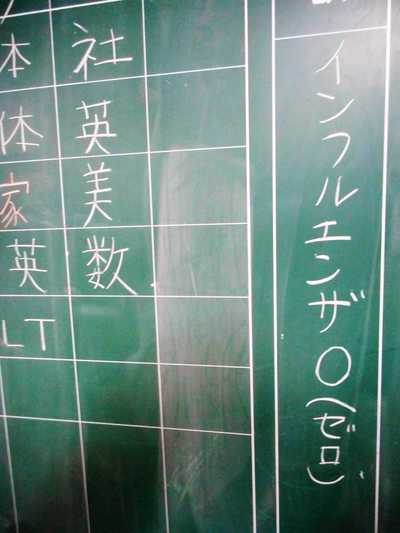 インフルエンザ〇(ゼロ)
社
英
美
数
本
体
家
英
LT